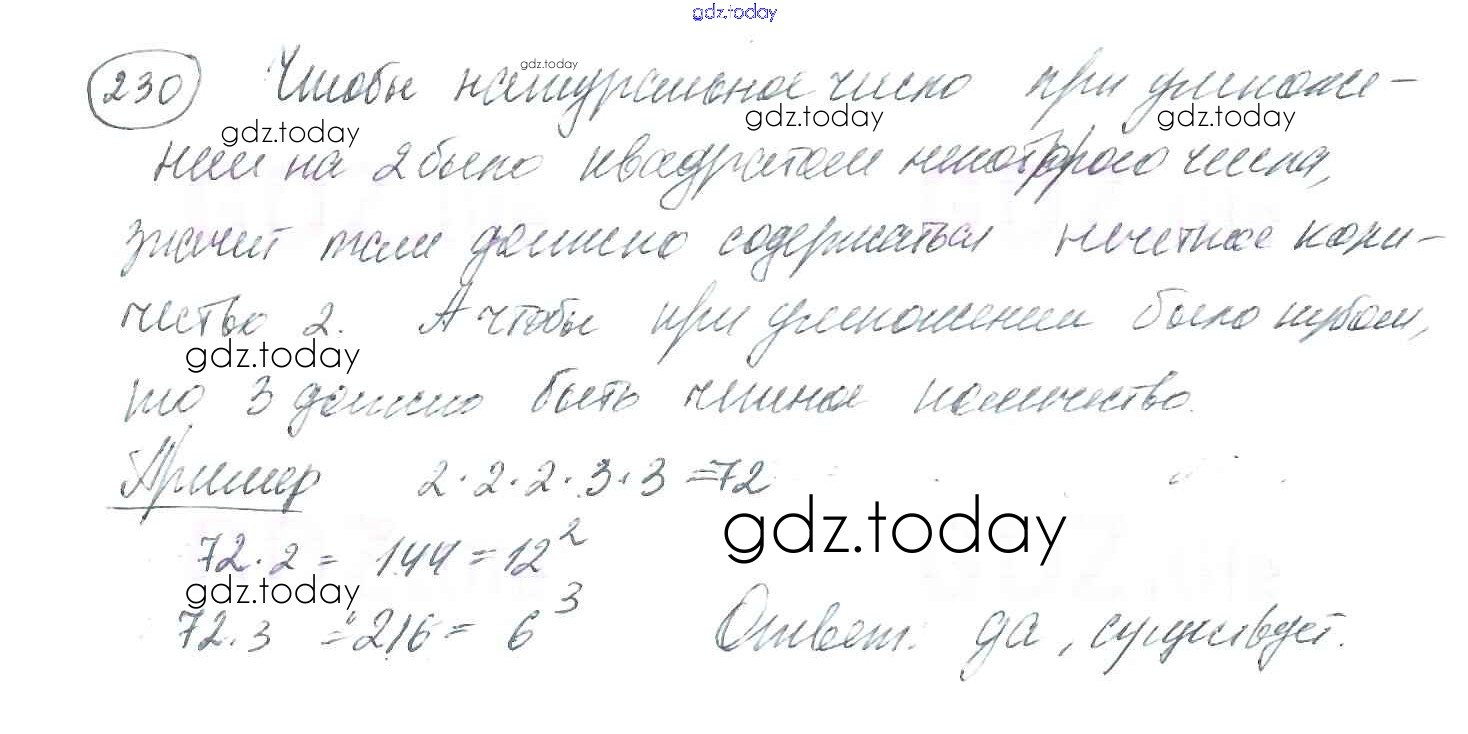 gdz.today
230 Чтобы натуральное число при умноже-
gdz.today
gdz.today gdz.today gdz.today
нии на 2 было квадратом некоторого числа,
значит там должно содержаться нечетное коли-
чество 2. А чтобы при умножении было кубом,
gdz.today
то 3 должно быть четное количество.
Пример 2·2·2·3·3=72
gdz.today
72·2 = 144 = 12²
gdz.today
72·3 = 216 = 6³ Ответ: да, существует.